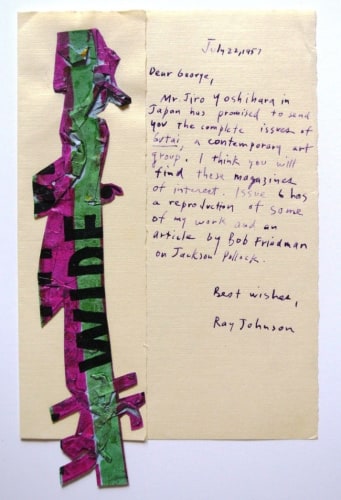 WIDE
July 22, 1957
Dear George,
Mr. Jiro Yoshihara in
Japan has promised to send
you the complete issues of
Gutai, a contemporary art
group. I think you will
find these magazines
of interest. Issue 6 has
a reproduction of some
of my work and an
article by Bob Friedman
on Jackson Pollock.
Best wishes,
Ray Johnson